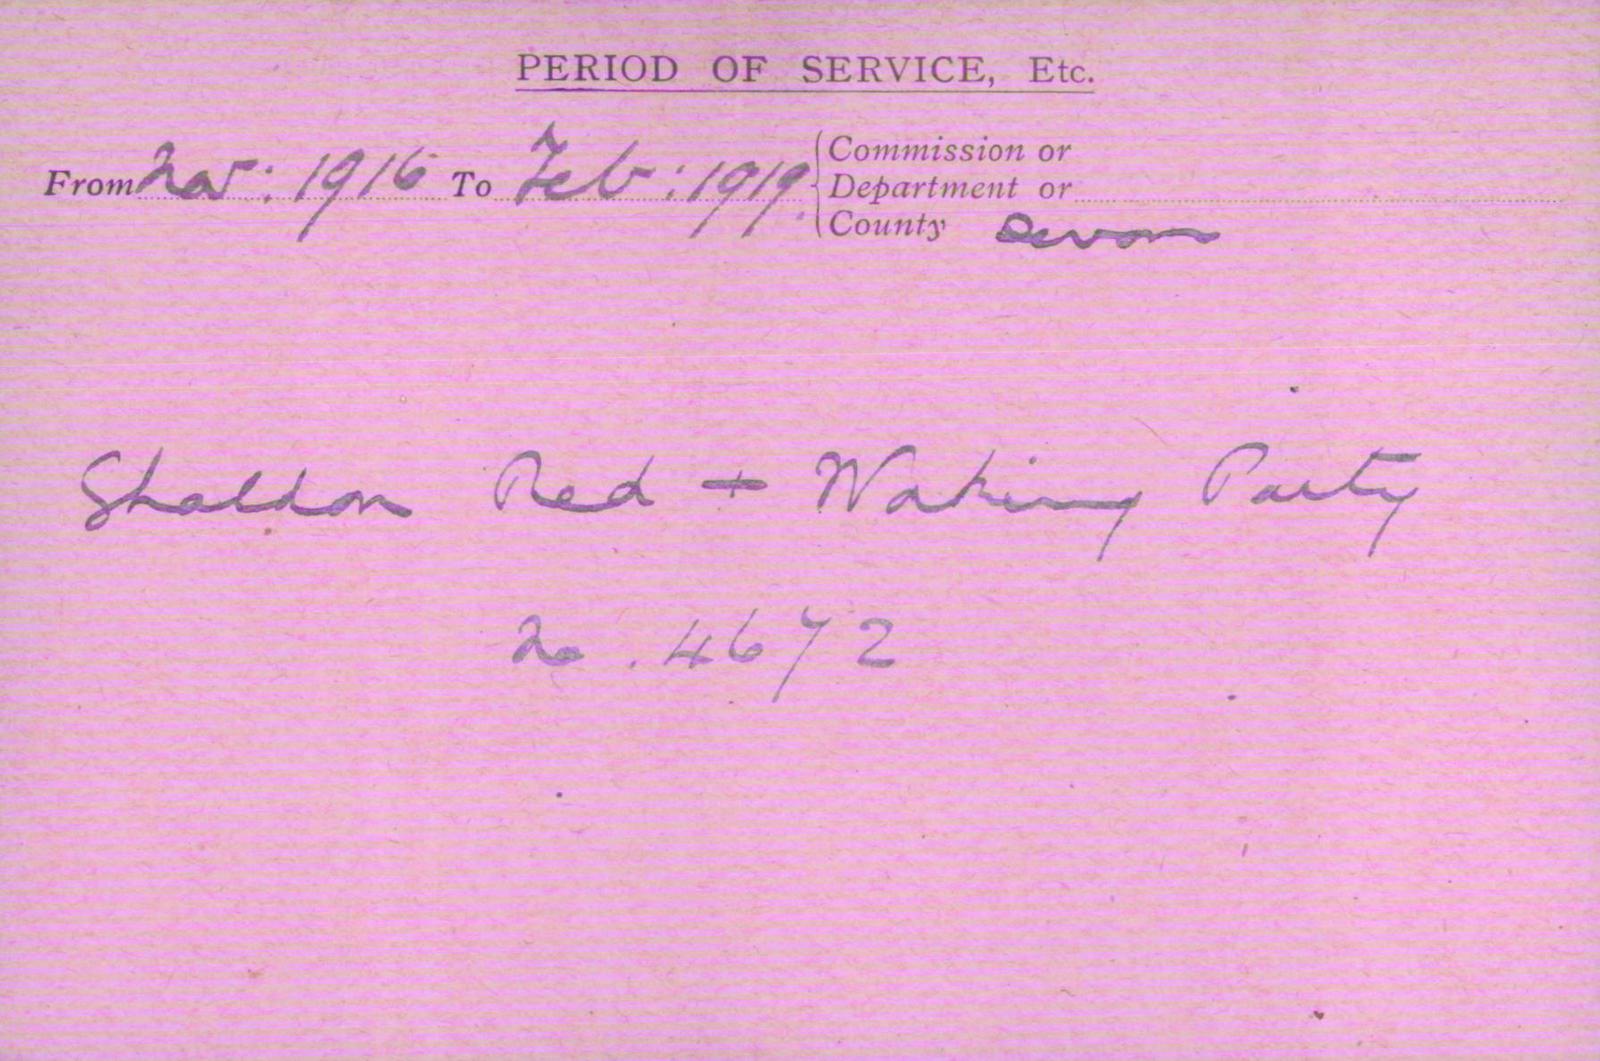 PERIOD OF SERVICE, Etc.
From Nov: 1916 To Feb: 1919. Commission or Department or County Devon
Shaldon Red + Working Party
No. 4672